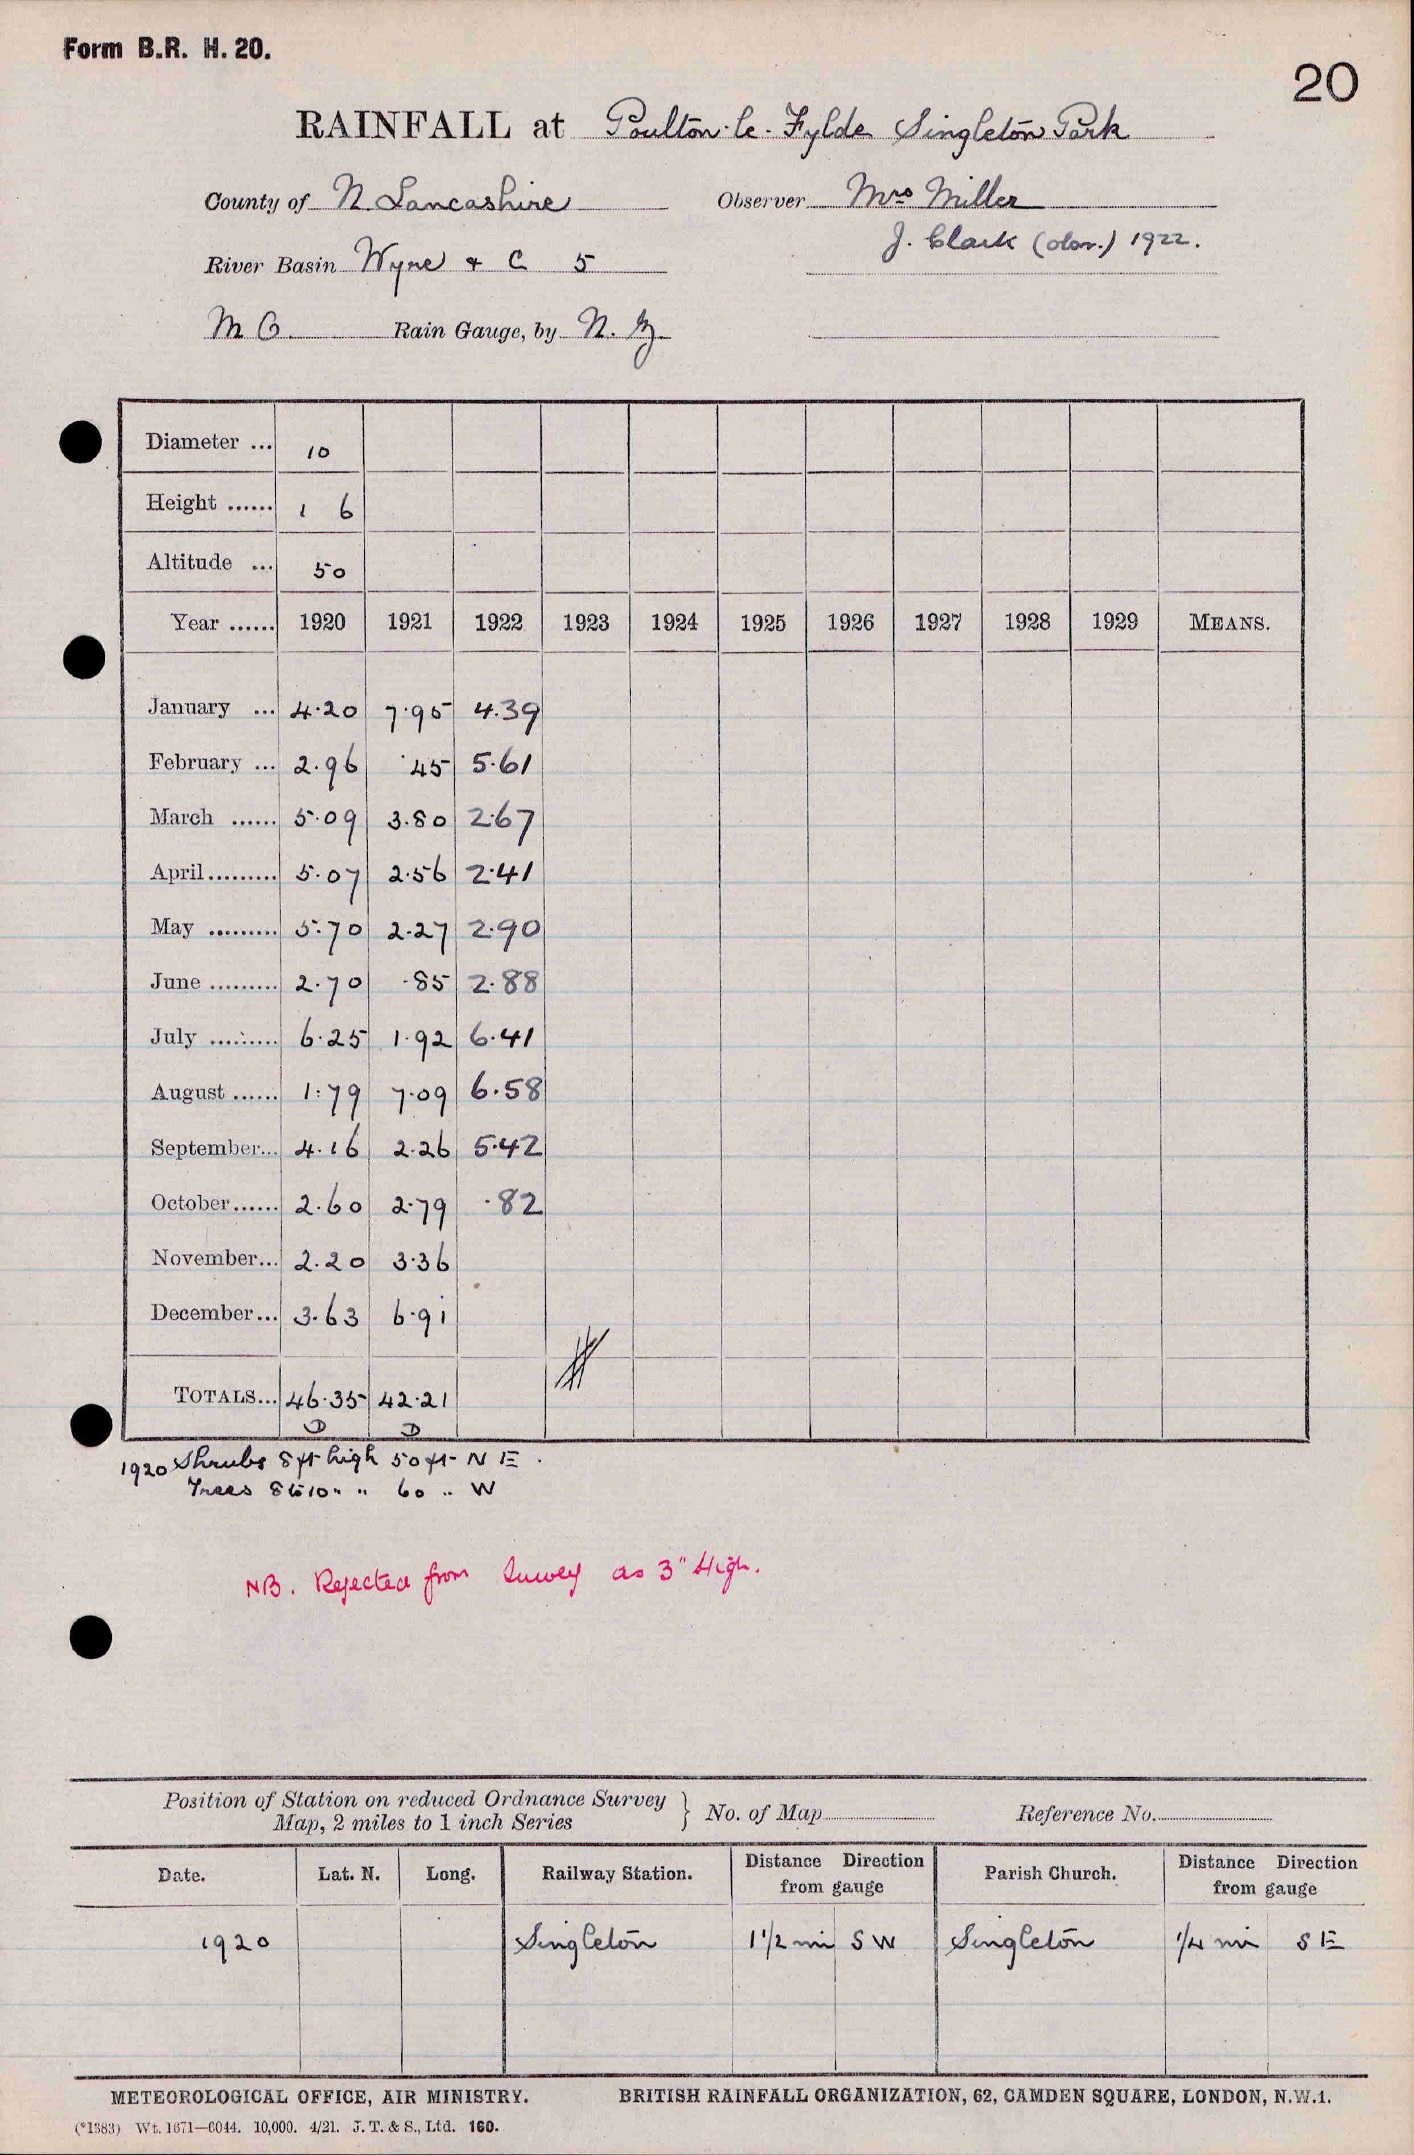 Form B.R. H. 20.
20
RAINFALL at Poulton-le-Fylde Singleton Park
County of N. Lancashire Observer Mrs Miller
J. Clark (obsr.) 1922.
River Basin Wyre & C 5
M O. Rain Gauge, by N. Z.
Diameter ... 10
Height ...... 1 6
Altitude ... 50
Year ...... 1920 1921 1922 1923 1924 1925 1926 1927 1928 1929 MEANS.
January ... 4.20 7.95 4.39
February ... 2.96 .45 5.61
March ...... 5.09 3.80 2.67
April......... 5.07 2.56 2.41
May ......... 5.70 2.27 2.90
June ......... 2.70 .85 2.88
July ......... 6.25 1.92 6.41
August ...... 1.79 7.09 6.58
September... 4.16 2.26 5.42
October...... 2.60 2.79 .82
November... 2.20 3.36
December... 3.63 6.91
TOTALS... 46.35 42.21
D D
1920 Shrubs 8 ft high 50 ft N E.
Trees 8 to 10 " " 60 " W
NB. Rejected from Survey as 3" High.
Position of Station on reduced Ordnance Survey
Map, 2 miles to 1 inch Series } No. of Map Reference No.
Date. Lat. N. Long. Railway Station. Distance Direction from gauge Parish Church. Distance Direction from gauge
1920 Singleton 1 1/2 mi S W Singleton 1/4 mi S E
METEOROLOGICAL OFFICE, AIR MINISTRY. BRITISH RAINFALL ORGANIZATION, 62, CAMDEN SQUARE, LONDON, N.W.1.
(*1383) Wt. 1671—6044. 10,000. 4/21. J. T. & S., Ltd. 160.